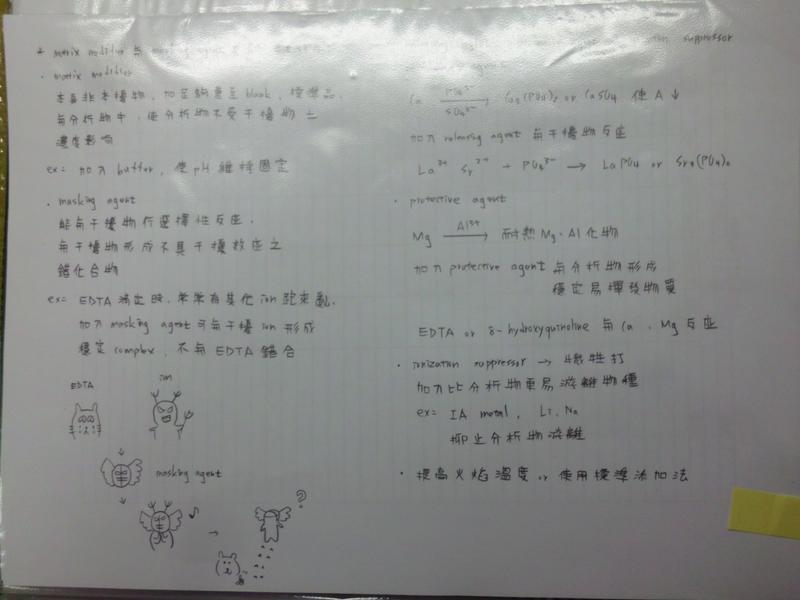 * matrix modifier 與 masking agent
ionization suppressor
· matrix modifier
本身非干擾物,加足夠量至 blank, 標準品,
與分析物中,使分析物不受干擾物之
濃度影響
ex= 加入 buffer, 使 pH 維持固定
· masking agent
能與干擾物行選擇性反應,
與干擾物形成不具干擾效應之
錯化合物
ex= EDTA 滴定時,常常有其他 ion 跑來亂,
加入 masking agent 可與干擾 ion 形成
穩定 complex, 不與 EDTA 錯合
EDTA
ion
masking agent
?
agent
Ca PO₄³⁻ / SO₄²⁻ → Ca₃(PO₄)₂ or CaSO₄ 使 A ↓
加入 releasing agent 與干擾物反應
La³⁺ Sr²⁺ + PO₄³⁻ → LaPO₄ or Sr₃(PO₄)₂
· protective agent
Mg Al³⁺ → 耐熱 Mg·Al 化物
加入 protective agent 與分析物形成
穩定易揮發物質
EDTA or 8-hydroxyquinoline 與 Ca、Mg 反應
· ionization suppressor → 犧牲打
加入比分析物更易游離物種
ex= IA metal, Li, Na
抑止分析物游離
· 提高火焰溫度 or 使用標準添加法